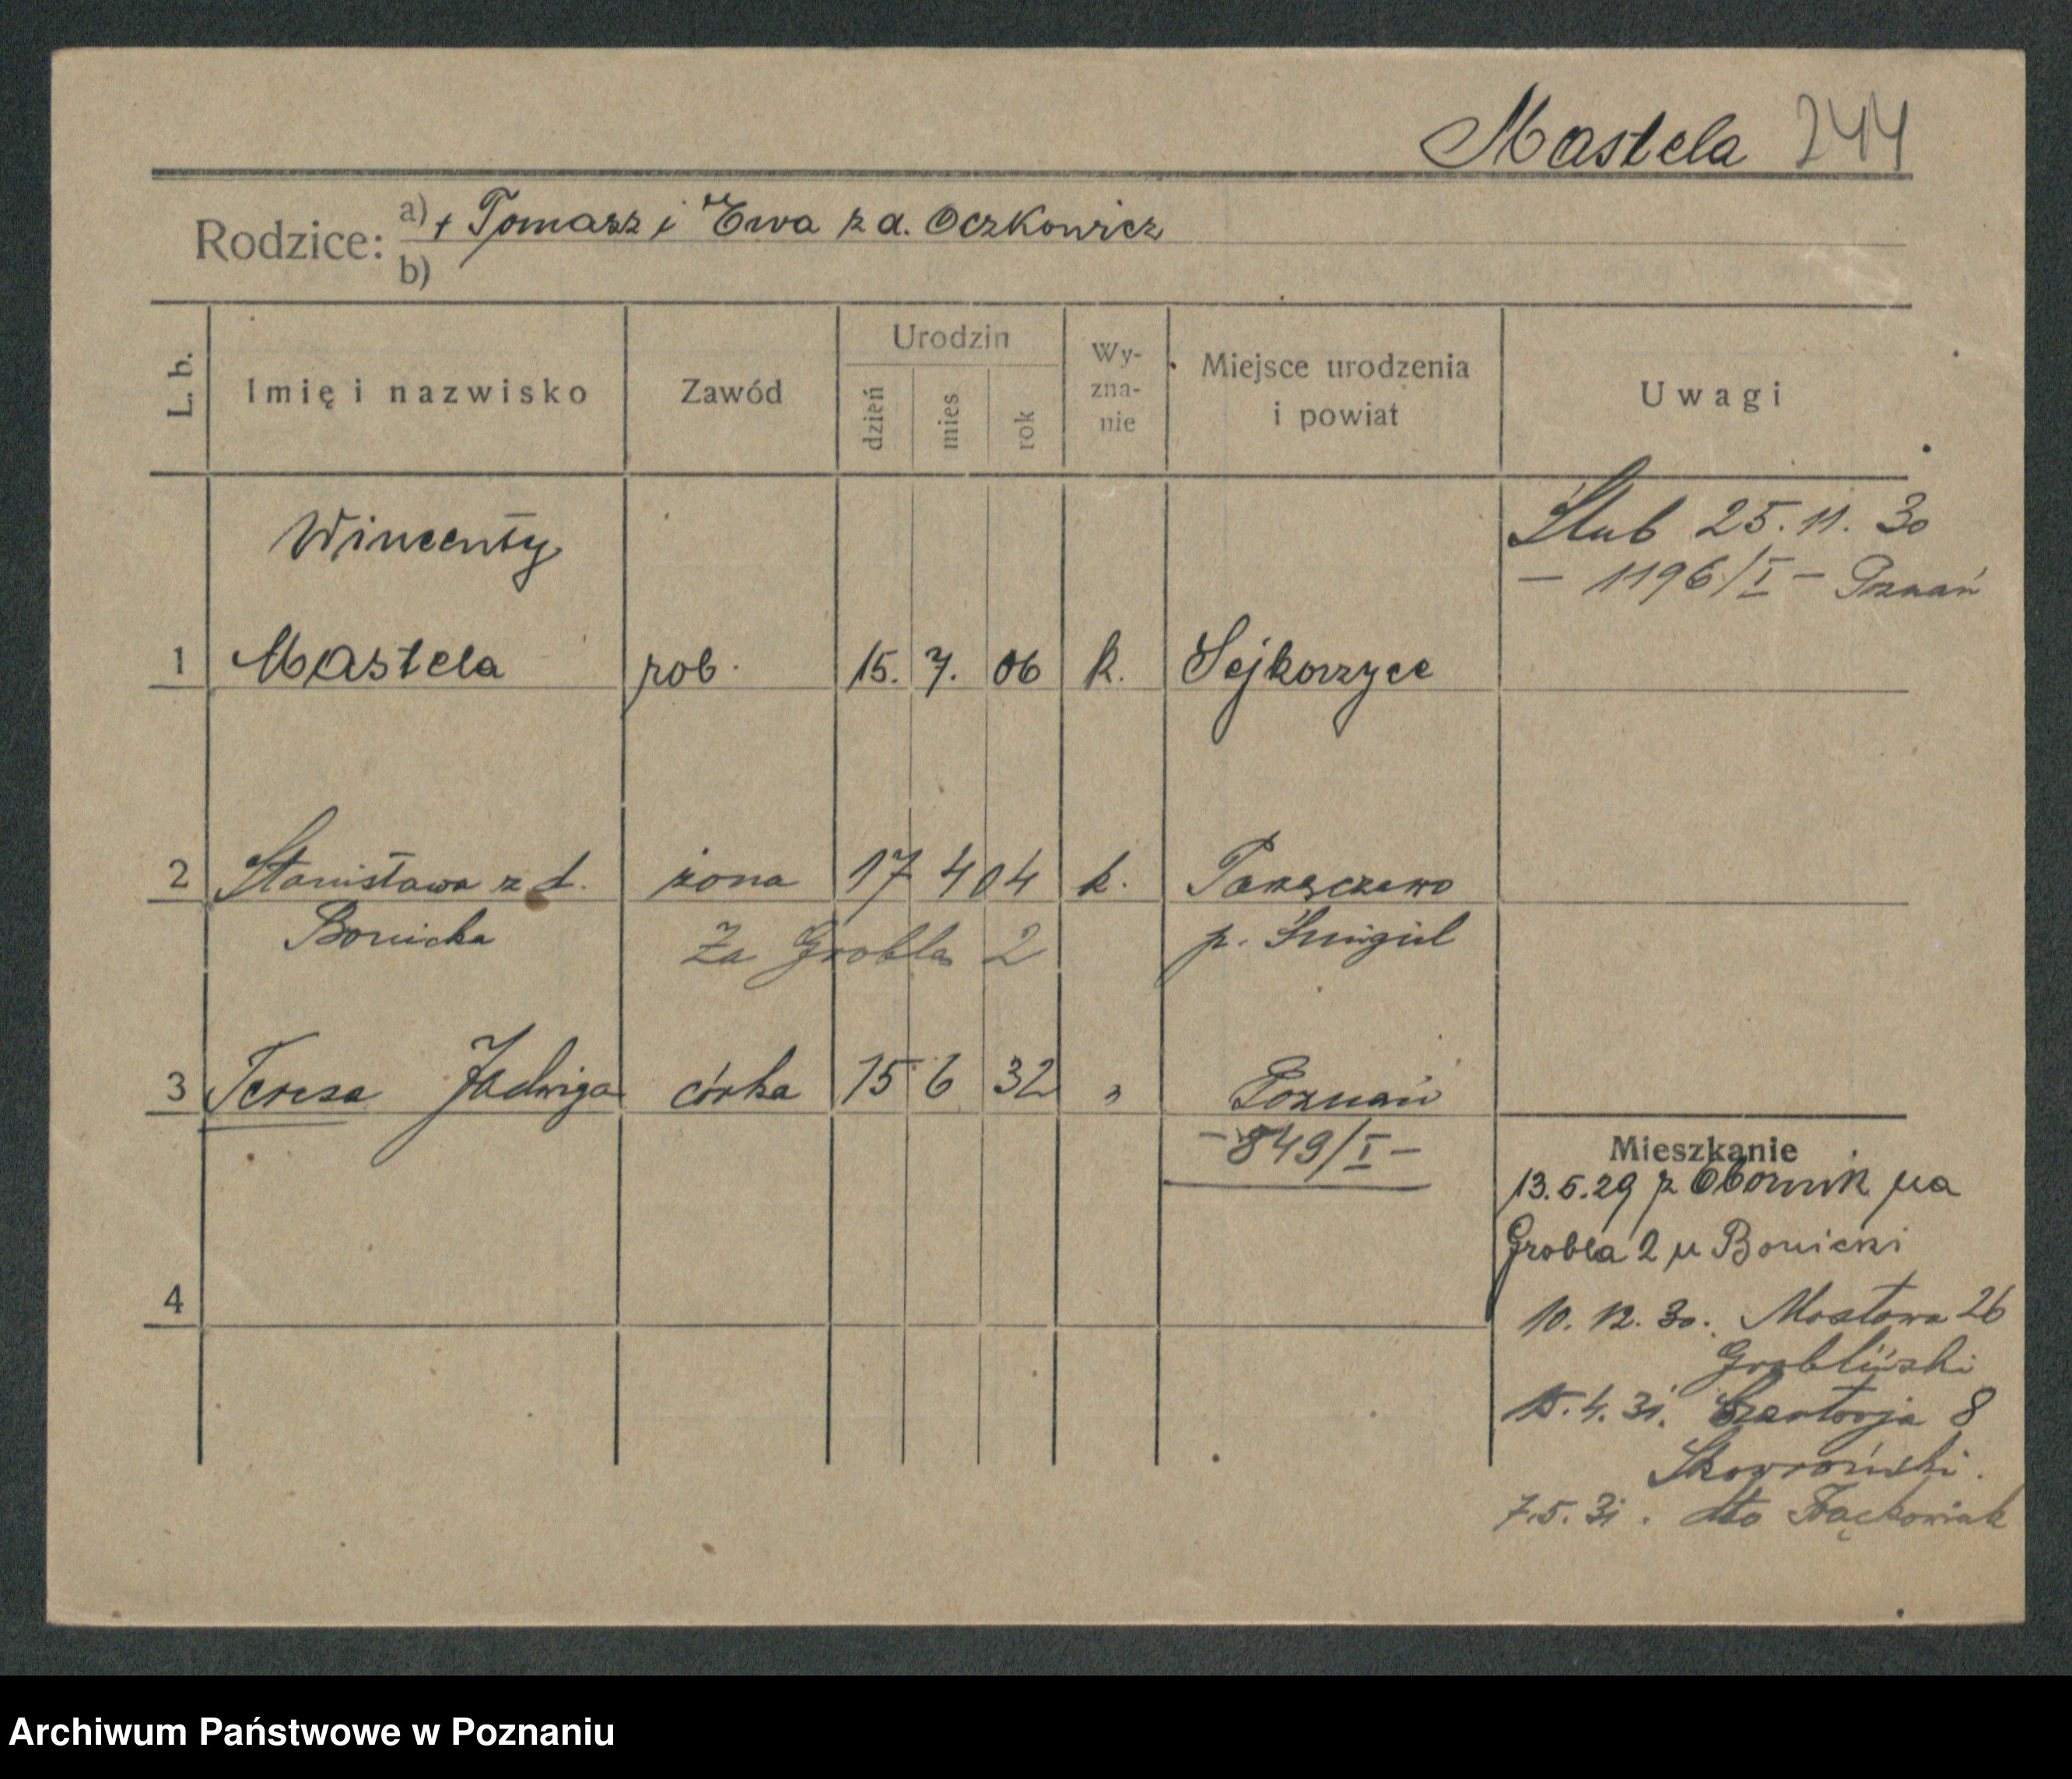 Mastela 244
Rodzice: a) + Tomasz i Ewa z d. Oczkowicz
b)
L. b. Imię i nazwisko Zawód Urodzin dzień mies rok Wy-zna-nie Miejsce urodzenia i powiat Uwagi
Ślub 25.11.30
– 1196/I – Poznań
Wincenty
1 Mastela rob. 15. 7. 06 k. Sejkorzyce
2 Stanisława z d. żona 17 4 04 k.
Bonicka Za Grobla 2 p. Śmigiel
3 Teresa Jadwiga córka 15 6 32 " Poznań
– 849/I –
Mieszkanie
13.5.29 z Obornik na
Grobla 2 u Bonicki
4
10. 12. 30. Mostowa 26
Grobliński
15. 4. 31. 8
Skowroński.
7.5. 31. dto Frąckowiak
Archiwum Państwowe w Poznaniu